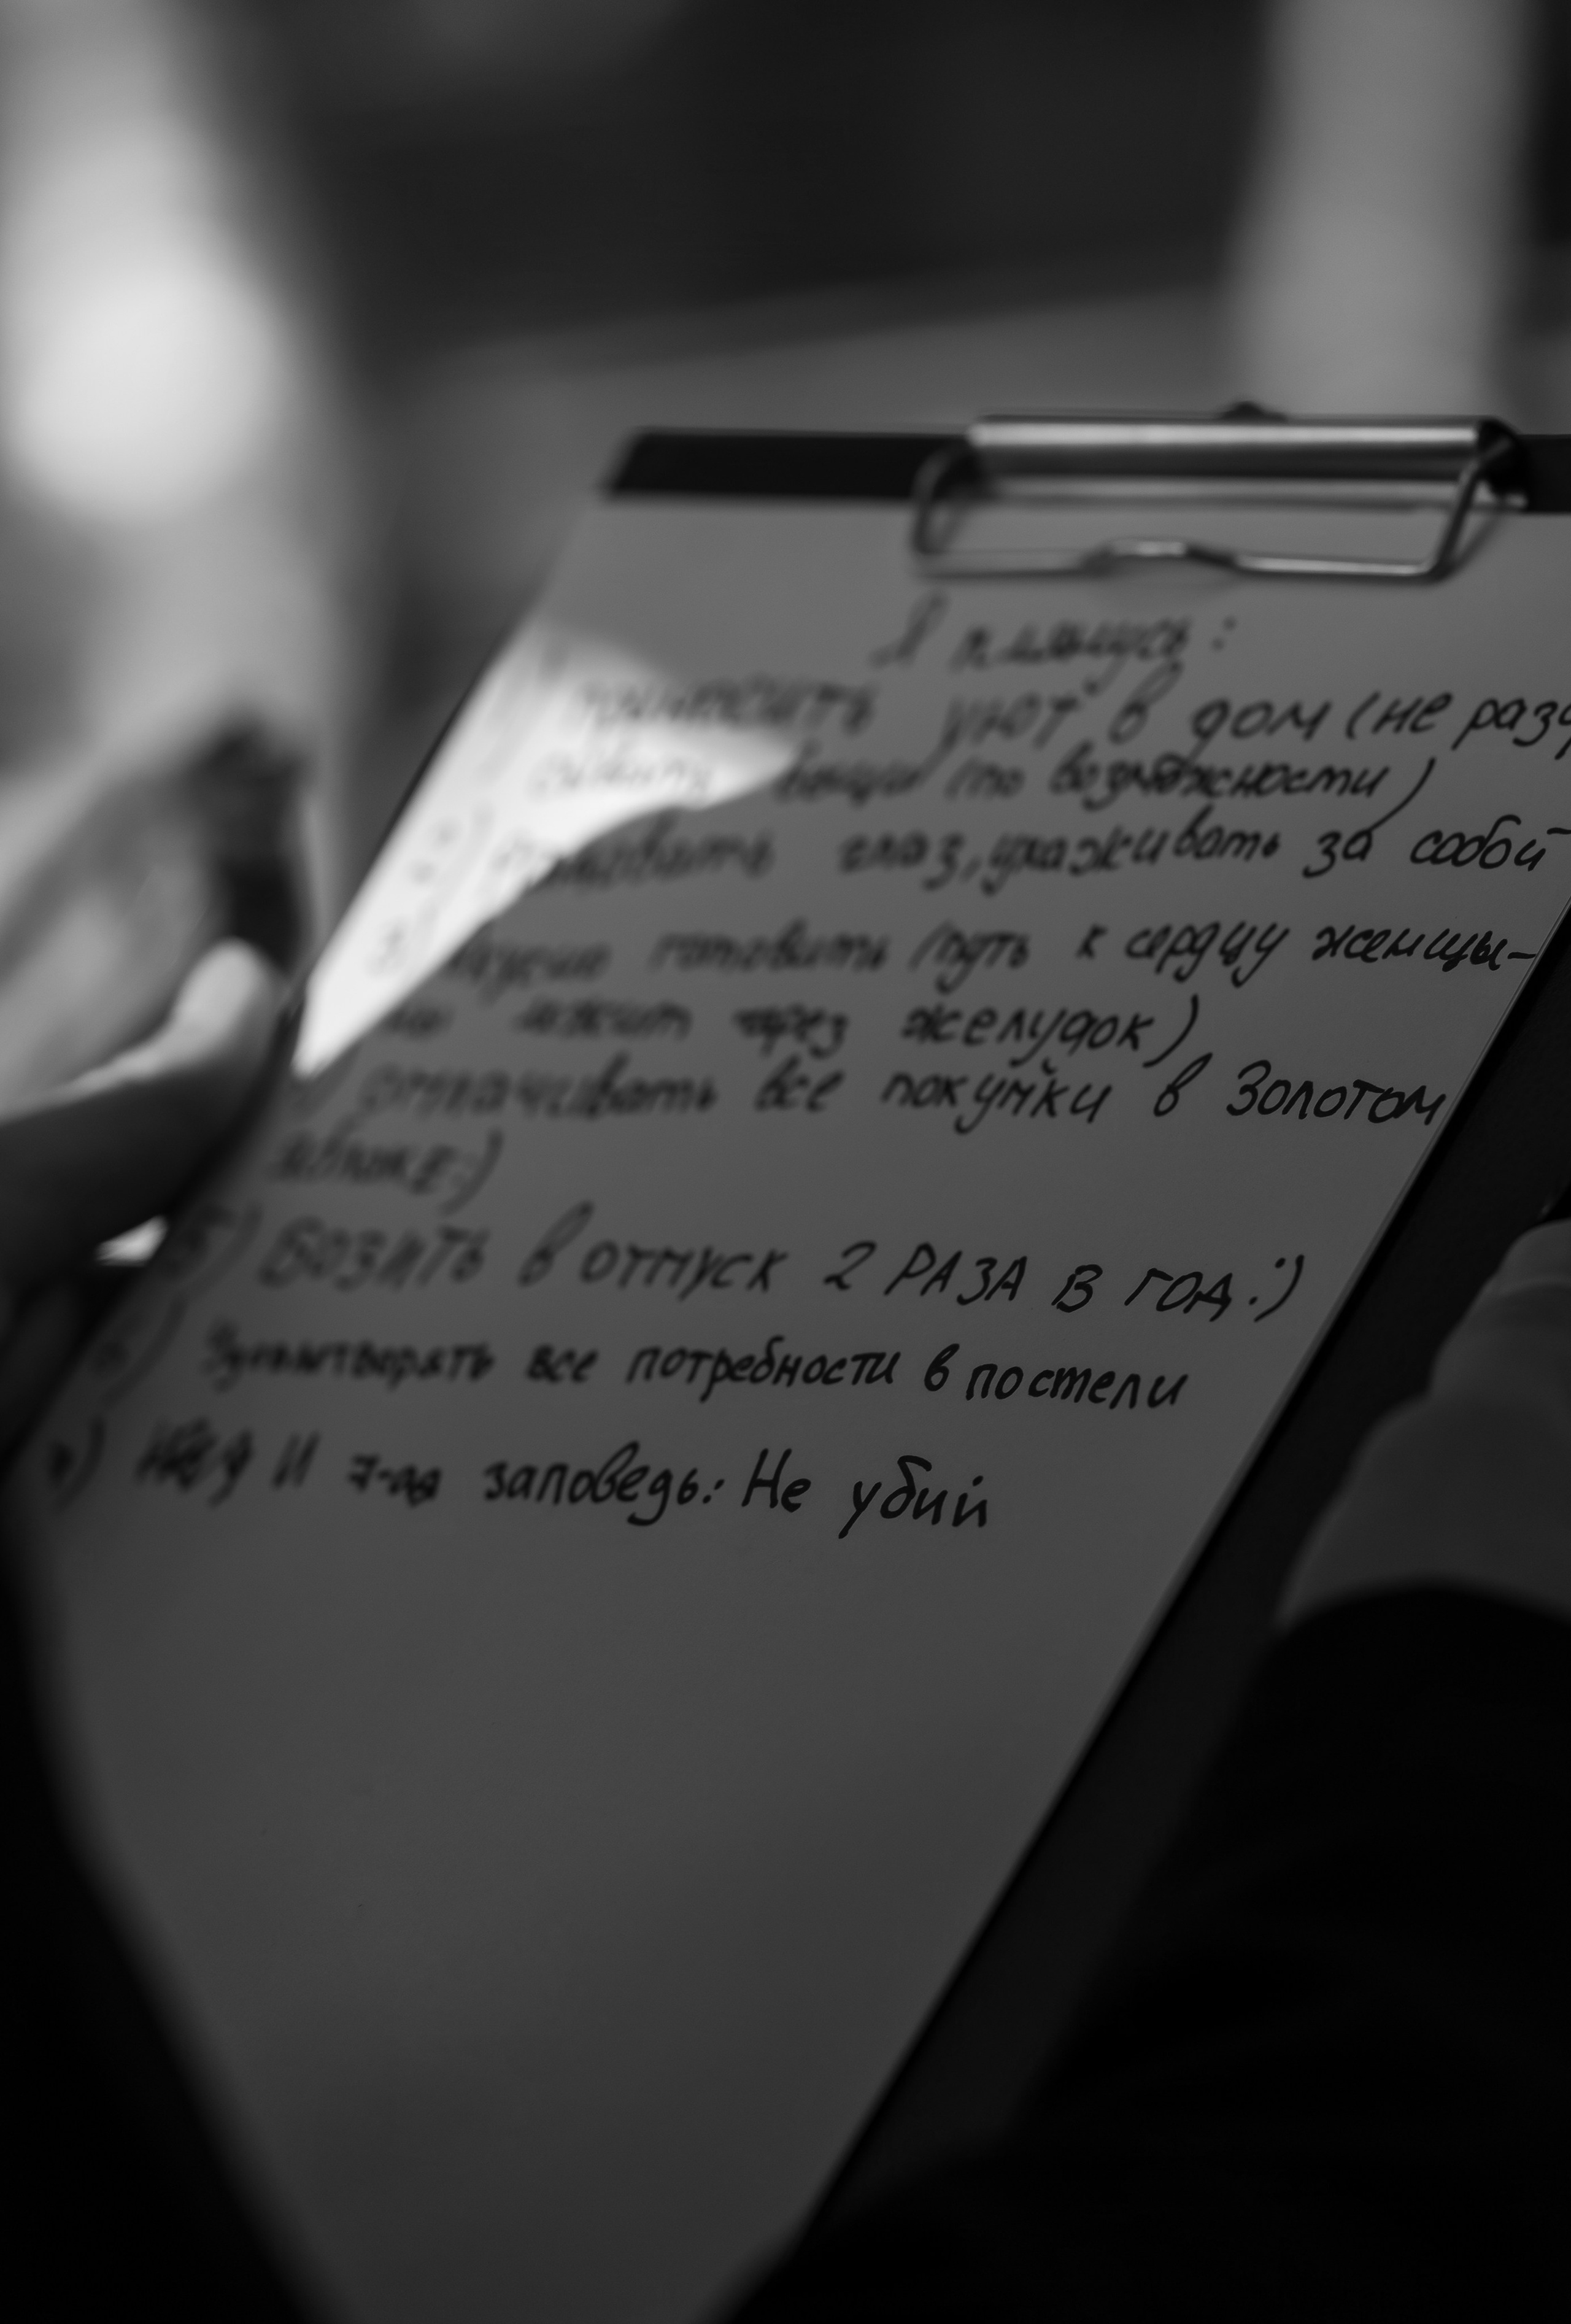 Я клянусь:
приносить уют в дом (не разбр
вещи (по возможности)
2) радовать глаз, ухаживать за собой
3) готовить (путь к сердцу женщы-
ны лежит через желудок)
оплачивать все покупки в Золотом
яблоке:)
5) ВОЗИТЬ в отпуск 2 РАЗА В ГОД:)
6) Удовлетворять все потребности в постели
7) И 7-ая заповедь: Не убий